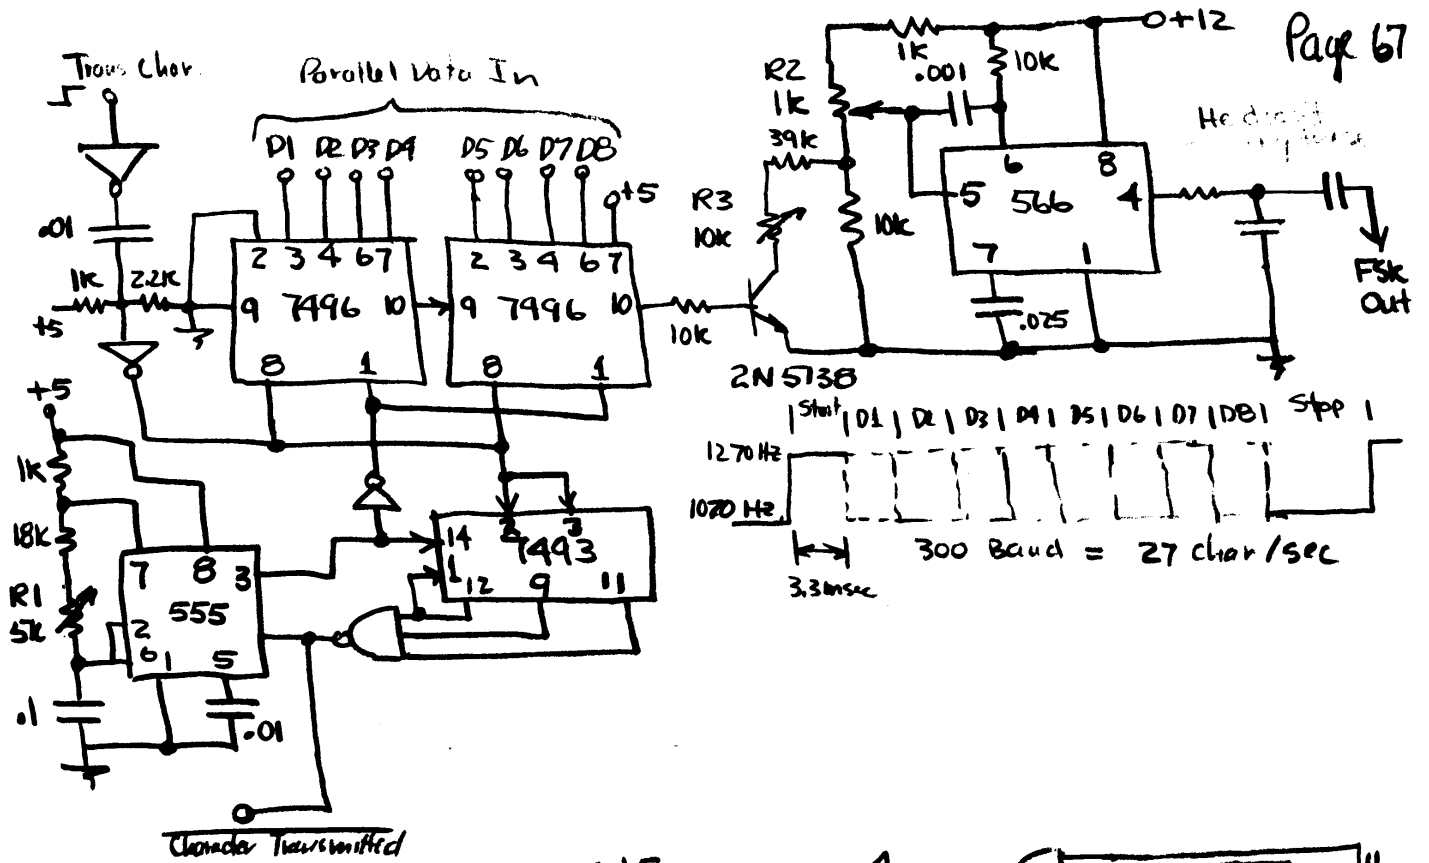 Page 67
Trans Char.
Parallel Data In
D1 D2 D3 D4 D5 D6 D7 D8
+5
.01
1K 2.2K
+5
2 3 4 6 7
9 7496 10
8 1
2 3 4 6 7
9 7496 10
8 1
10K
+12
1K
10K
.001
R2
1K
39K
R3
10K
10K
6 8
5 566 4
7 1
.025
2N5738
FSK
Out
+5
1K
18K
R1
5K
.1
7 8 3
555
2
6 1 5
.01
14 2 3
7493
1 12 9 11
Character Transmitted
Start D1 D2 D3 D4 D5 D6 D7 D8 Stop
1270Hz
1070 Hz
300 Baud = 27 char/sec
3.3msec